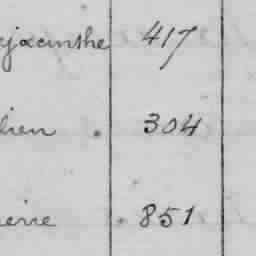 yacinthe 417
lien . 304
ierre . 851